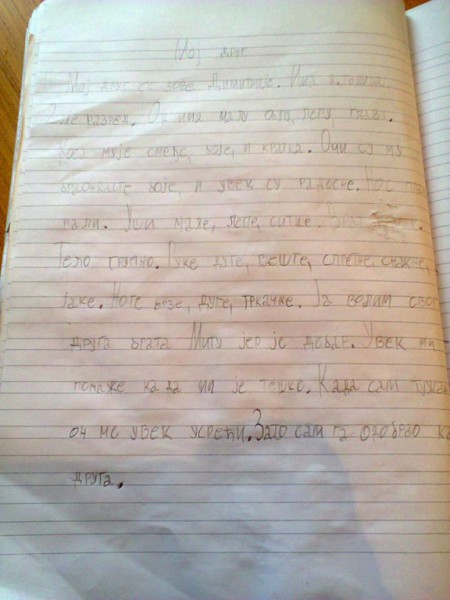 Мој друг
Мој друг се зове Димитрије. Има
разред. Он има малу, лепу, главу.
Коса му је смеђе, боје, и кратка. Очи су му
боје, и увек су радосне. Нос
мали. Уши мале, лепе, ситне.
Тело крупно. Руке дуге, веште, спретне, снажне,
јаке. Ноге брзе, дуге, тркачке. Ја волим свог
друга брата Миту јер је добар. Увек ми
помаже када ми је тешко. Када сам тужан
он ме увек усрећи. Зато сам га одабрао ка
друга.